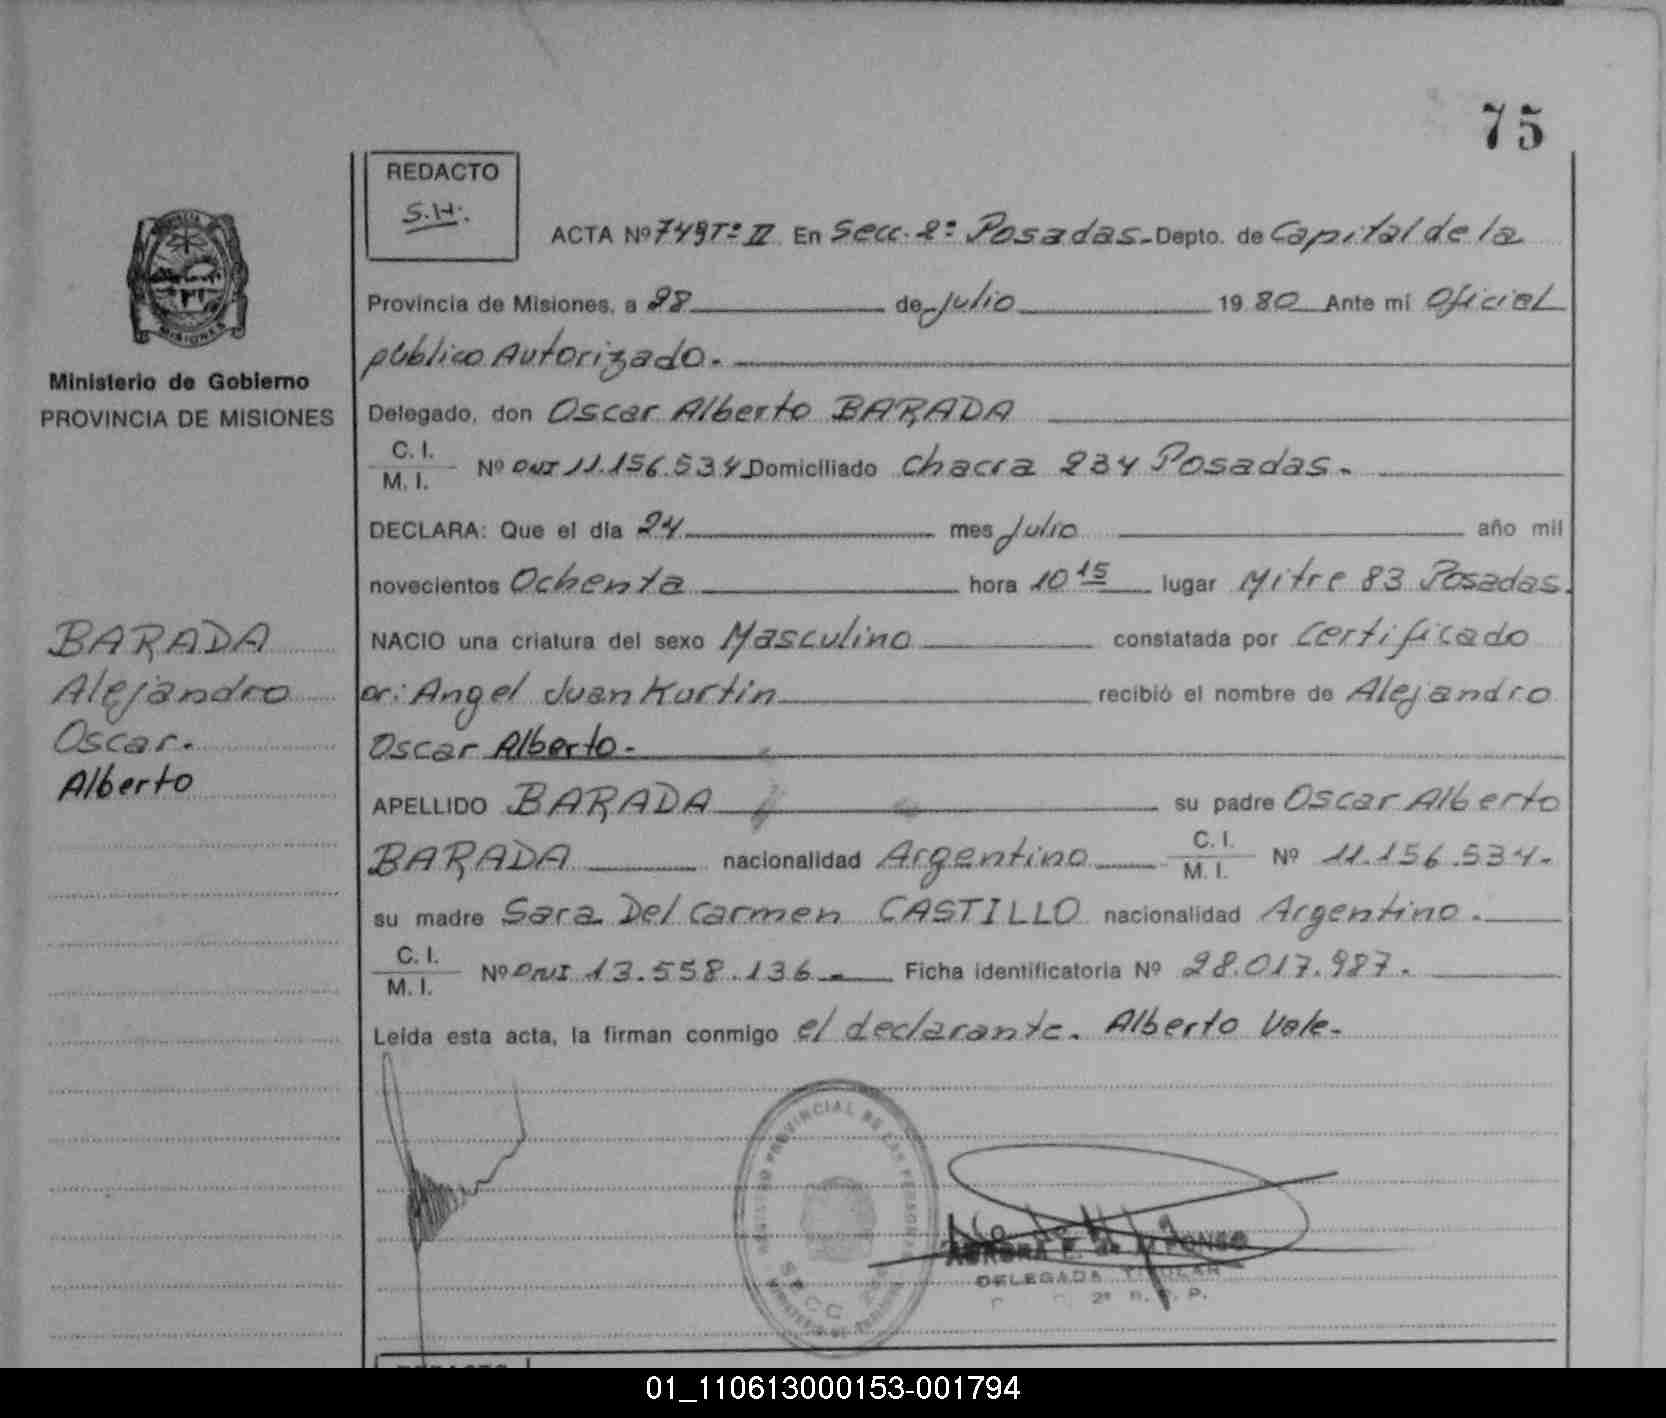 75
REDACTO
S.H.
ACTA Nº 749 Tº II En Secc. 2ª Posadas. Depto. de Capital de la
Provincia de Misiones, a 28 de Julio 1980 Ante mí Oficial
público Autorizado.
Ministerio de Gobierno
PROVINCIA DE MISIONES
Delegado, don Oscar Alberto BARADA
C. I.
M. I. Nº DNI 11.156.534 Domiciliado Chacra 234 Posadas.
DECLARA: Que el día 24 mes Julio año mil
novecientos Ochenta hora 10 15 lugar Mitre 83 Posadas.
BARADA
Alejandro
Oscar.
Alberto
NACIO una criatura del sexo Masculino constatada por Certificado
or: Angel Juan Kurtin recibió el nombre de Alejandro
Oscar Alberto.
APELLIDO BARADA su padre Oscar Alberto
BARADA nacionalidad Argentino C. I.
M. I. Nº 11.156.534.
su madre Sara Del Carmen CASTILLO nacionalidad Argentino.
C. I.
M. I. Nº DNI 13.558.136 Ficha identificatoria Nº 28.017.987.
Leída esta acta, la firman conmigo el declarante. Alberto Vale.
REGISTRO PROVINCIAL DE LAS PERSONAS
SECC
AURORA E. de ALFONSO
DELEGADA TITULAR
2ª R. P.
REDACTO
01_110613000153-001794